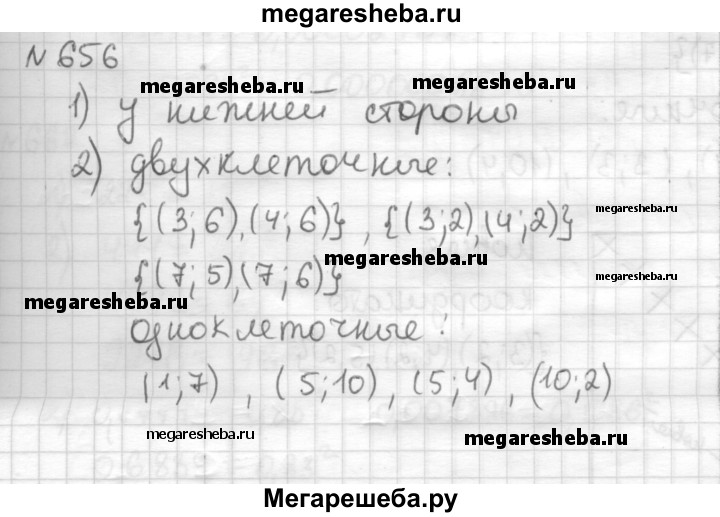 megaresheba.ru
N 656
megaresheba.ru megaresheba.ru
1) у нижней стороны
2) двухклеточные:
{(3;6),(4;6)}, {(3;2),(4;2)}
megaresheba.ru
megaresheba.ru
{(7;5),(7;6)}
megaresheba.ru
megaresheba.ru
одноклеточные:
(1;7), (5;10), (5;4), (10;2)
megaresheba.ru megaresheba.ru
Мегарешеба.ру